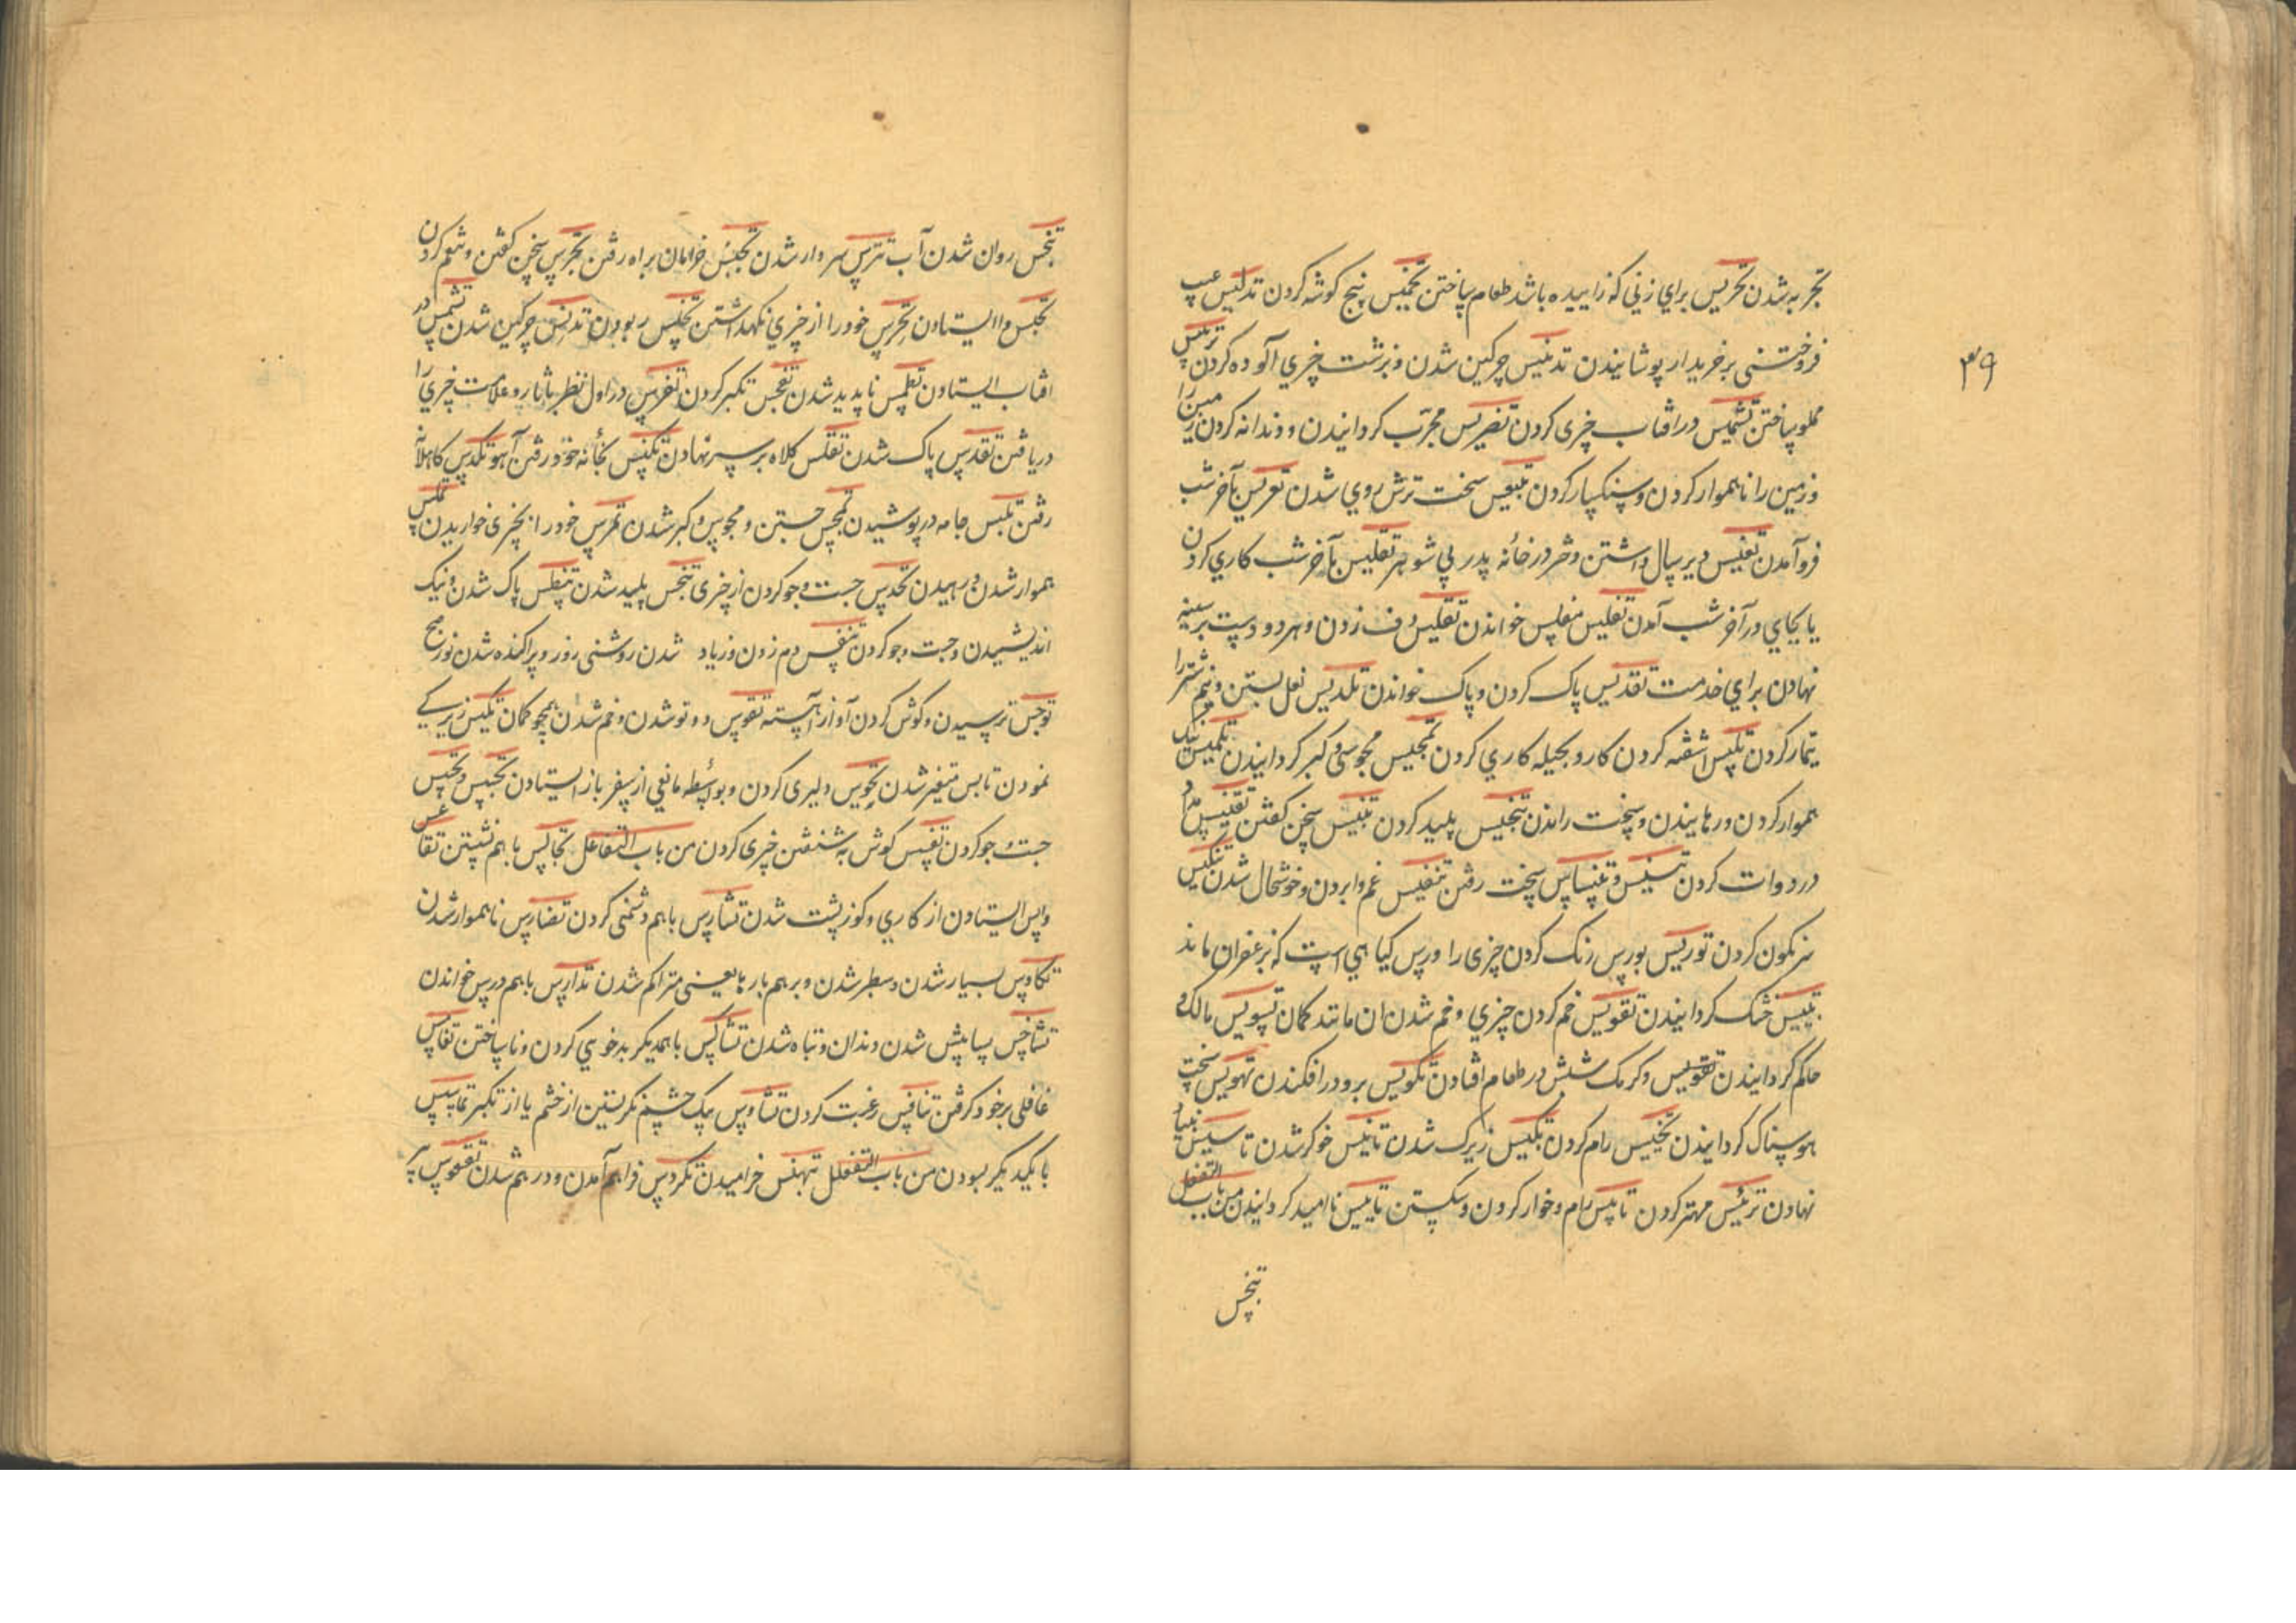 تجربه شدن تخریس برای زنی که زاییده باشد طعام پاختن تخمیس پنج کوشه کردن تدلیس عیب
فروختنی بر خریدار پوشانیدن تدنیس چرکین شدن و بزشت چیزی آلوده کردن ترمیس
مملو پاختن تشمیس در افتاب چیزی کردن تضریس مجرب کردانیدن و دندانه کردن زمین را
و زمین را ناهموار کردن و سنکسار کردن تعبیس سخت ترش روی شدن تعریس بآخر شب
فرو آمدن تعنیس دیر سال داشتن دختر در خانه پدر بی شوهر تغلیس بآخر شب کاری کردن
یا بجای در آخر شب آمدن تفلیس مفلس خواندن تقلیس دف زدن و هر دو دست بر سینه
نهادن برای خدمت تقدیس پاک کردن و پاک خواندن تلدیس نعل بستن و نیم شتر را
تیمار کردن تلبیس اشفته کردن کار و بحیله کاری کردن تمجیس مجوسی و کبر کردانیدن تملیس نیک
هموار کردن و رهانیدن و سخت راندن تنجیس پلید کردن تنبیس سخن کفتن تنقیس مداد
در دوات کردن سخت رفتن تنفیس غم وا بردن و خوشحال شدن تنکیس
سرنکون کردن توریس بورس رنک کردن چیزی را ورس کیاهی است که بزعفران ماند
تیبیس خشک کردانیدن تقویس خم کردن چیزی و خم شدن ان مانند کمان تسویس مالک و
حاکم کردانیدن و کرمک شپش در طعام افتادن تکویس برو در افکندن تهویس سخت
هوسناک کردانیدن تخییس رام کردن تکییس زیرک شدن تانیس خوکر شدن تاسیس بنیاد
نهادن ترئیس مهتر کردن تابیس رام و خوار کردن و شکستن تاییس ناامید کردانیدن من باب التفعل
تبخس
۳۹
تبجس روان شدن آب تترس سپردار شدن خرامان براه رفتن تجرس سخن کفتن و نغم کردن
تحبس وا ایستادن تحرس خود را از چیزی نکهداشتن تخلس ربودن تدنس چرکین شدن تشمس در
افتاب ایستادن تطمس ناپدید شدن تعجس تکبر کردن تفرس در اول نظر باثار و علامت چیزی را
دریافتن تقدس پاک شدن تقلس کلاه بر سر نهادن تکنس بخانه خود رفتن آهو تکدس کاهلانه
رفتن تلبس جامه در پوشیدن تمجس جستن و مجوس و کبر شدن تمرس خود را بچیزی خواریدن تملس
هموار شدن و رهیدن تحدس جست و جو کردن از چیزی تنجس پلید شدن تنطس پاک شدن و نیک
اندیشیدن و جست و جو کردن تنفس دم زدن و زیاد شدن روشنی روز و پراکنده شدن نور صبح
توجس ترسیدن و کوش کردن آواز آهسته تقوس دو تو شدن و خم شدن همچو کمان تکیس زیرکی
نمودن تابس متغیر شدن دلیری کردن و بواسطه مانعی از سفر باز ایستادن تجسس و تحسس
جست و جو کردن کوش به شنفتن چیزی کردن من باب التفاعل تجالس با هم نشستن تقاعس
واپس ایستادن از کاری و کوز پشت شدن تشارس با هم دشمنی کردن تضارس ناهموار شدن
تکاوس بسیار شدن و سطبر شدن و بر هم بار ها یعنی متراکم شدن تدارس با هم درس خواندن
تشاخس پس و پیش شدن دندان و تباه شدن تشاکس با همدیکر بدخوی کردن و ناساختن
غافلی بر خود کرفتن تنافس رغبت کردن تشاوس بیک چشم نکریستن از خشم یا از تکبر
با یکدیکر بسودن من باب التفعلل تبهنس خرامیدن تکردس فراهم آمدن و در هم شدن